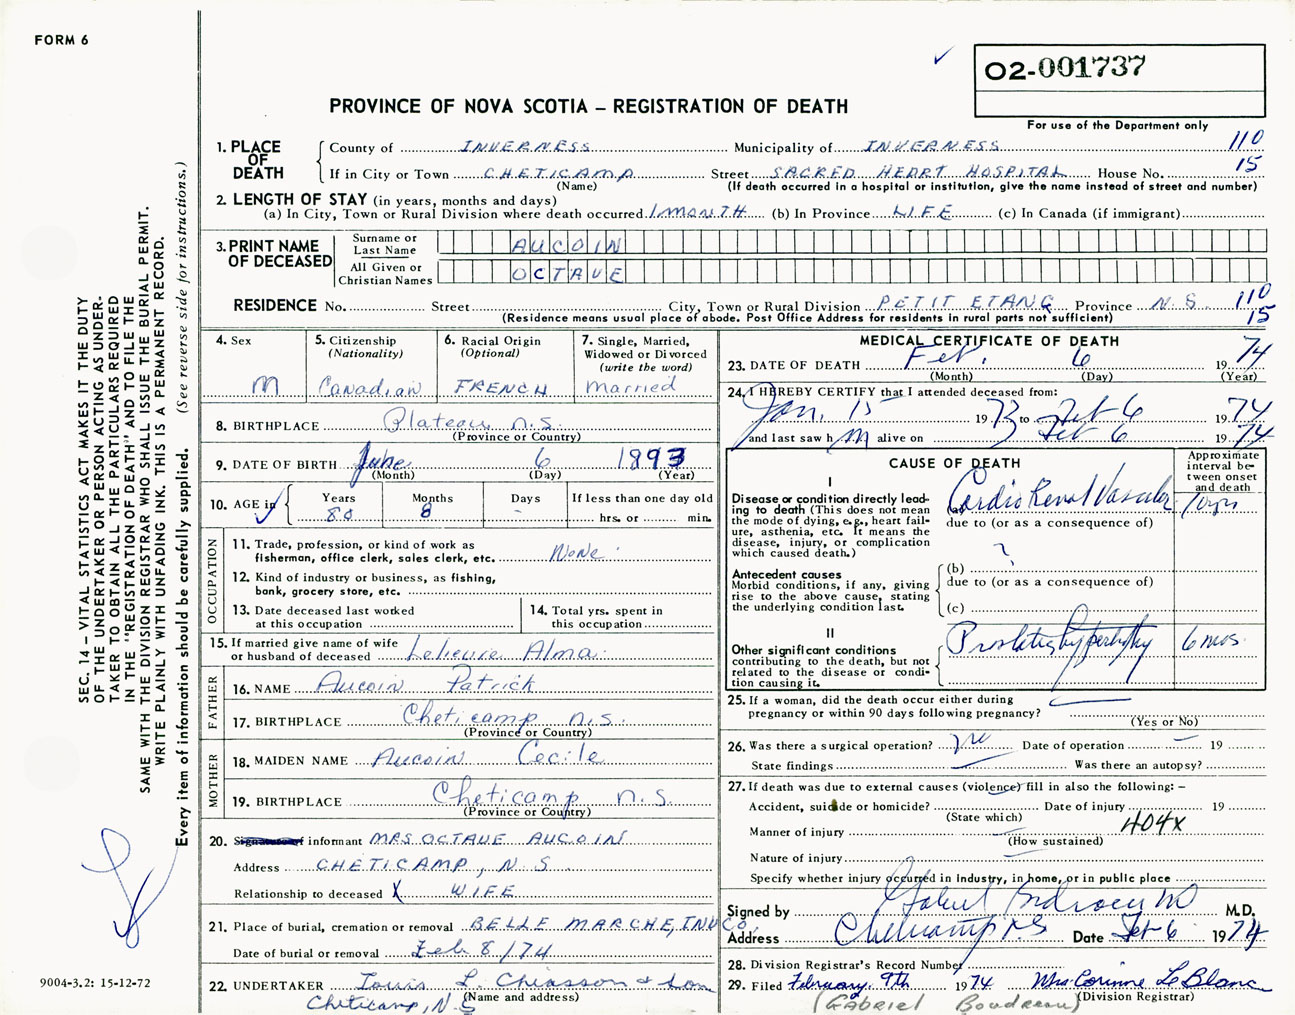 FORM 6
O2-001737
PROVINCE OF NOVA SCOTIA – REGISTRATION OF DEATH
For use of the Department only
1. PLACE OF DEATH
County of INVERNESS Municipality of INVERNESS 110
If in City or Town CHETICAMP Street SACRED HEART HOSPITAL House No. 15
(Name) (If death occurred in a hospital or institution, give the name instead of street and number)
2. LENGTH OF STAY (in years, months and days)
(a) In City, Town or Rural Division where death occurred 1 MONTH (b) In Province LIFE (c) In Canada (if immigrant)
3. PRINT NAME OF DECEASED
Surname or Last Name AUCOIN
All Given or Christian Names OCTAVE
RESIDENCE No. Street City, Town or Rural Division PETIT ETANG Province N.S. 110
(Residence means usual place of abode. Post Office Address for residents in rural parts not sufficient) 15
4. Sex
M
5. Citizenship
(Nationality)
Canadian
6. Racial Origin
(Optional)
FRENCH
7. Single, Married,
Widowed or Divorced
(write the word)
married
8. BIRTHPLACE Plateau n.s.
(Province or Country)
9. DATE OF BIRTH June 6 1893
(Month) (Day) (Year)
10. AGE in
Years Months Days If less than one day old
80 8 - hrs. or min.
OCCUPATION
11. Trade, profession, or kind of work as
fisherman, office clerk, sales clerk, etc. None
12. Kind of industry or business, as fishing,
bank, grocery store, etc.
13. Date deceased last worked
at this occupation
14. Total yrs. spent in
this occupation
15. If married give name of wife
or husband of deceased Lelievre Alma
FATHER
16. NAME Aucoin Patrick
17. BIRTHPLACE Cheticamp n.s.
(Province or Country)
MOTHER
18. MAIDEN NAME Aucoin Cecile
19. BIRTHPLACE Cheticamp n.s.
(Province or Country)
20. informant MRS OCTAVE AUCOIN
Address CHETICAMP, N.S
Relationship to deceased X WIFE
21. Place of burial, cremation or removal BELLE MARCHE, INV CO.
Date of burial or removal Feb 8/74
22. UNDERTAKER Louis L. Chiasson & Son
(Name and address)
Cheticamp, N.S
MEDICAL CERTIFICATE OF DEATH
23. DATE OF DEATH Feb. 6 1974
(Month) (Day) (Year)
24. I HEREBY CERTIFY that I attended deceased from:
Jan, 15 1973 to Feb 6 1974
and last saw h m alive on Feb 6 1974
CAUSE OF DEATH
Approximate interval between onset and death
I
Disease or condition directly lead-
ing to death (This does not mean
the mode of dying, e.g., heart fail-
ure, asthenia, etc. It means the
disease, injury, or complication
which caused death.)
(a) Cardio Renal Vascular 10 yrs
due to (or as a consequence of)
Antecedent causes
Morbid conditions, if any, giving
rise to the above cause, stating
the underlying condition last.
?
(b)
due to (or as a consequence of)
(c)
II
Other significant conditions
contributing to the death, but not
related to the disease or condi-
tion causing it.
Prostatic hypertrophy 6 mos.
25. If a woman, did the death occur either during
pregnancy or within 90 days following pregnancy?
(Yes or No)
26. Was there a surgical operation? no Date of operation – 19
State findings Was there an autopsy?
27. If death was due to external causes (violence) fill in also the following: –
Accident, suicide or homicide? Date of injury 19
(State which)
404X
Manner of injury
(How sustained)
Nature of injury
Specify whether injury occurred in Industry, in home, or in public place
Signed by Gabriel Boudreau MD M.D.
Address Cheticamp N.S Date Feb 6 1974
28. Division Registrar's Record Number
29. Filed February 9th 1974 Mrs. Corinne LeBlanc
(Division Registrar)
(Gabriel Boudreau)
SEC. 14 – VITAL STATISTICS ACT MAKES IT THE DUTY
OF THE UNDERTAKER OR PERSON ACTING AS UNDER-
TAKER TO OBTAIN ALL THE PARTICULARS REQUIRED
IN THE "REGISTRATION OF DEATH" AND TO FILE THE
SAME WITH THE DIVISION REGISTRAR WHO SHALL ISSUE THE BURIAL PERMIT.
WRITE PLAINLY WITH UNFADING INK. THIS IS A PERMANENT RECORD.
Every item of information should be carefully supplied. (See reverse side for instructions.)
9004-3.2: 15-12-72